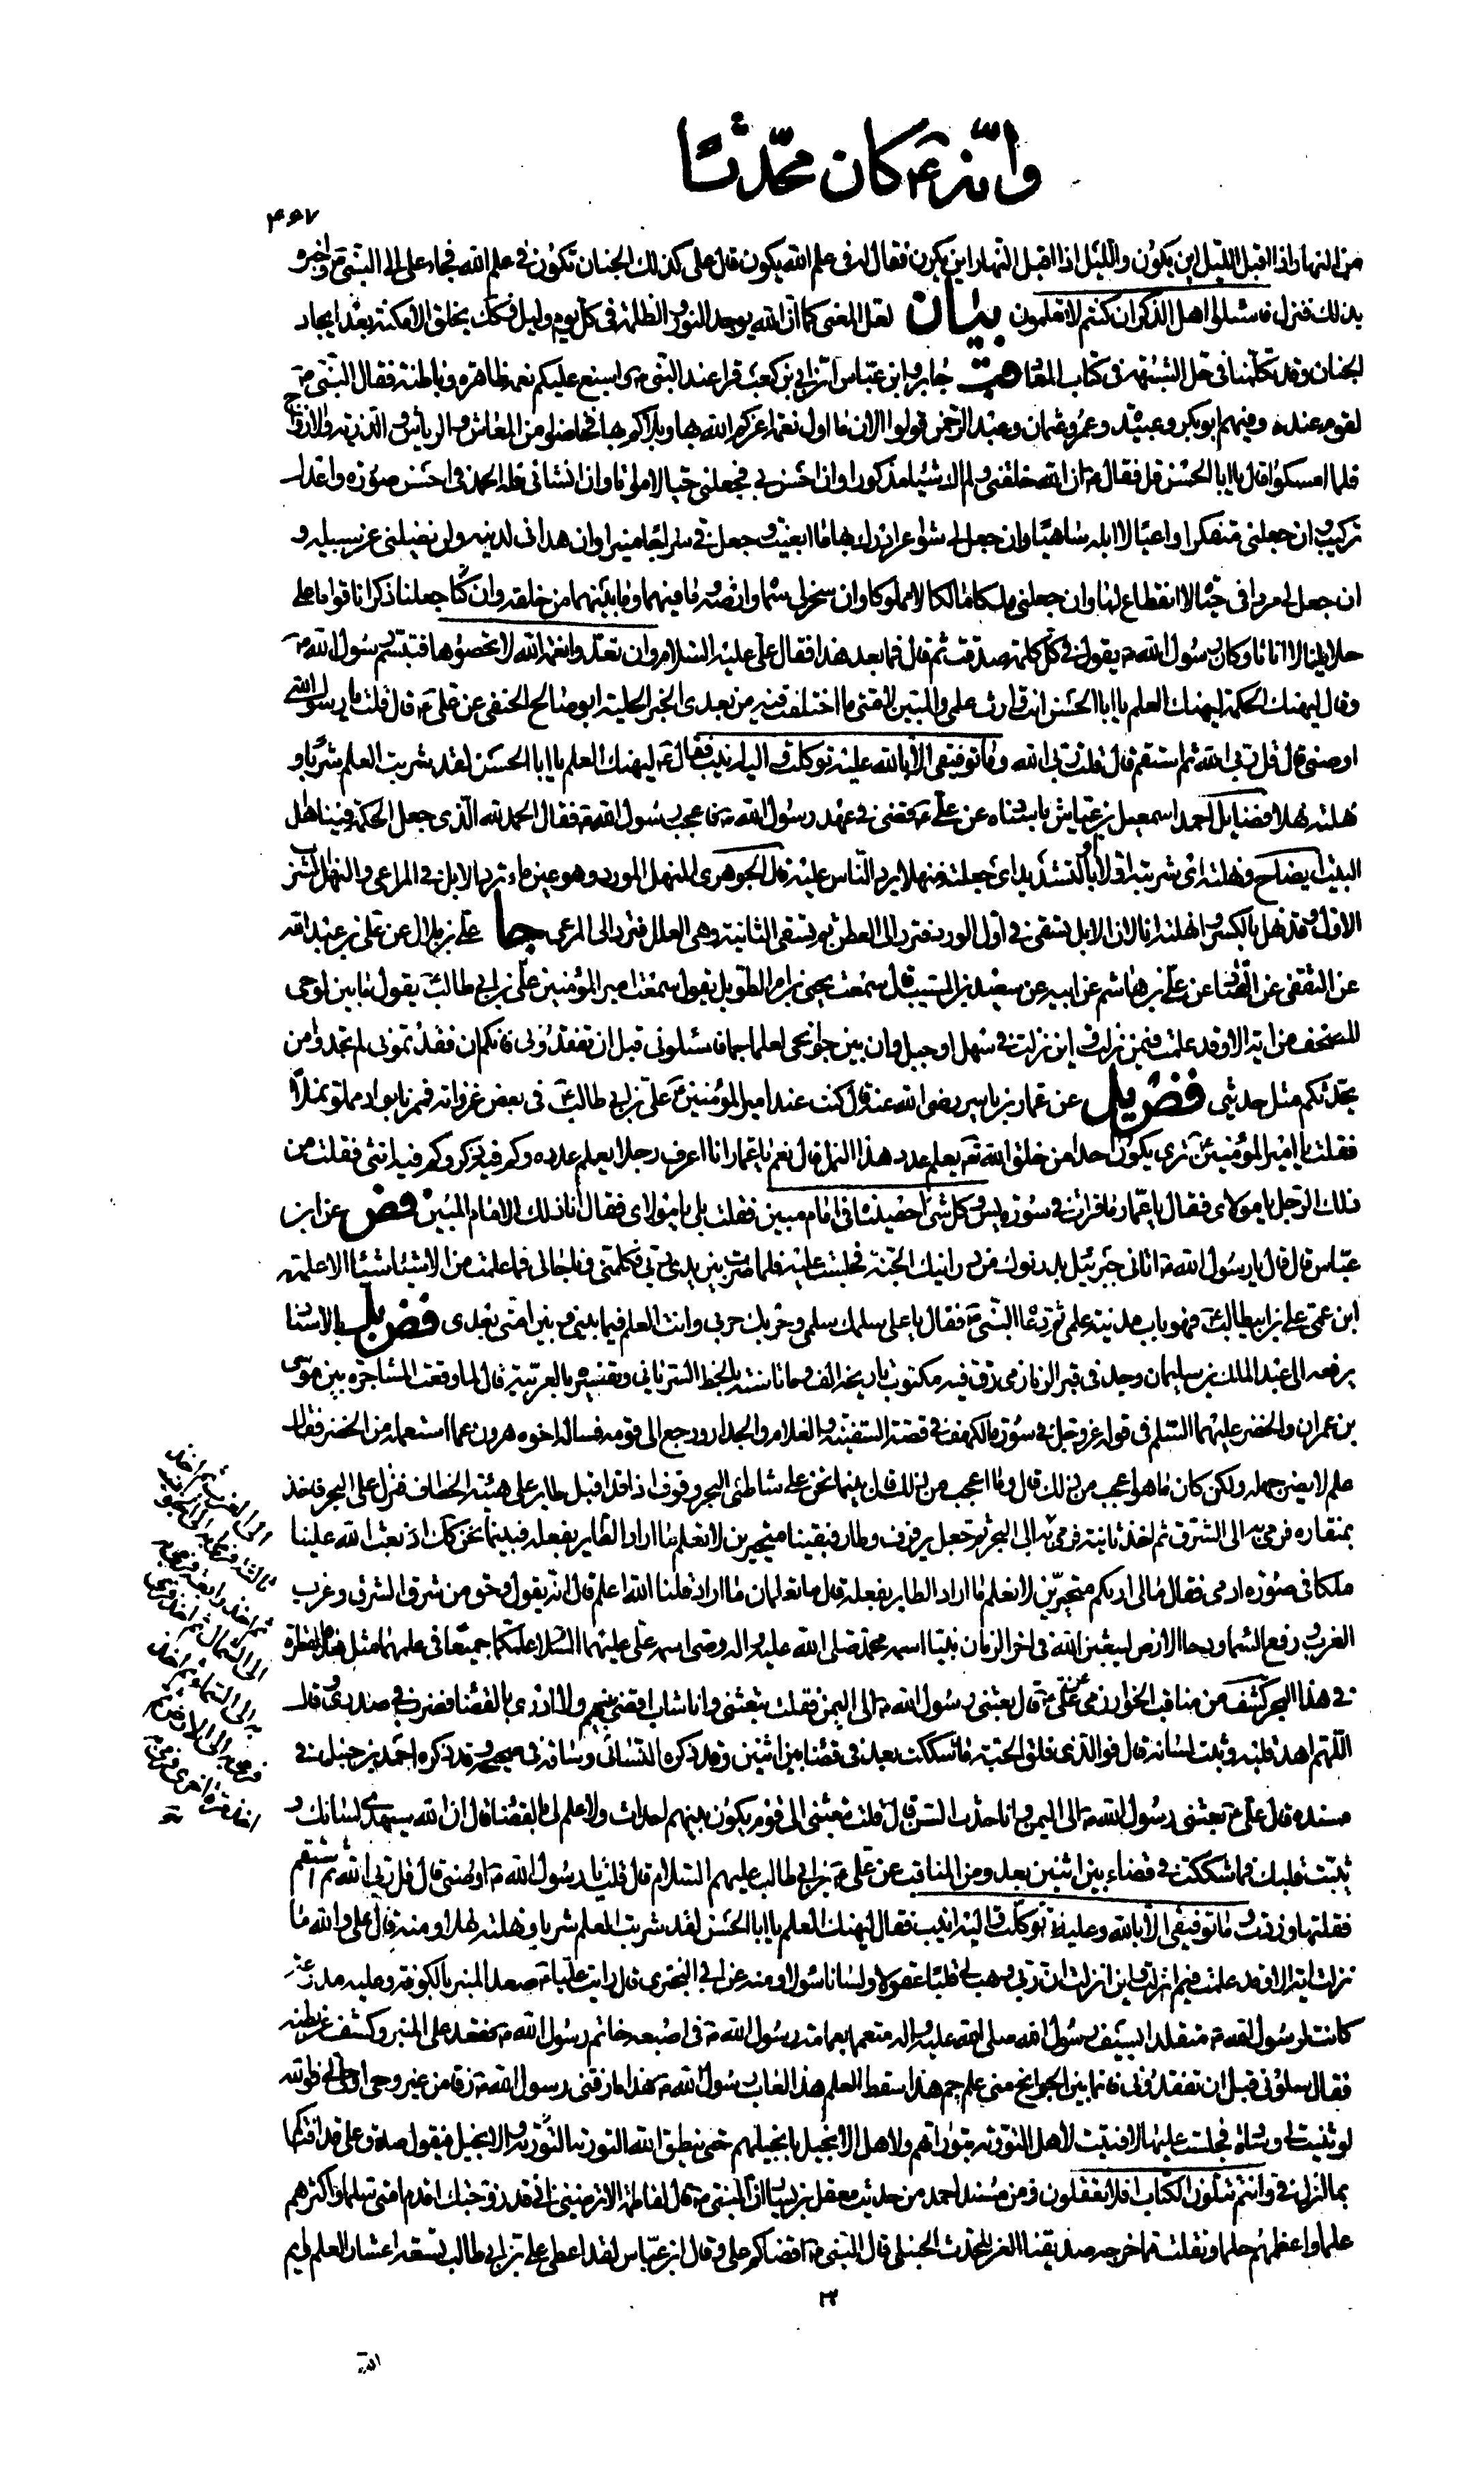 وانه ع كان محدثا
۴۶۷
من النهار اذا اقبل الليل اين يكون والليل اذا اقبل النهار اين يكون فقال له في علم الله يكون قال علي كذلك الجنان تكون في علم الله فجاء علي الى النبي ص واخبره
بذلك فنزل فاسئلوا اهل الذكر ان كنتم لا تعلمون بيان لعل المعنى كما ان الله يوجد النور والظلمة في كل يوم وليل فكك يخلق الامكنة بعد ايجاد
الجنان وقد تكلمنا في حل الشبهة في كتاب المعاد جابر وابن عباس ان ابي بن كعب قرا عند النبي ص واسبغ عليكم نعمه ظاهرة وباطنة فقال النبي ص
لقوم عنده وفيهم ابو بكر وعبيدة وعمر وعثمان وعبد الرحمن قولوا الان ما اول نعمة اعزكم الله بها وبلاكم بها فخاضوا من المعاش والرياش والذرية والازواج
فلما امسكوا قال يا ابا الحسن قل فقال ع ان الله خلقني ولم اك شيئا مذكورا وان احسن بي فجعلني حيا لا مواتا وان انشاني فله الحمد في احسن صورة واعدل
تركيب وان جعلني متفكرا واعيا لا ابله ساهيا وان جعل لي شواعر ادرك بها ما ابتغيت وجعل في سراجا منيرا وان هداني لدينه ولن يضلني عن سبيله و
ان جعل لي مردا في حيوة لا انقطاع لها وان جعلني ملكا مالكا لا مملوكا وان سخر لي سماواته وارضه وما فيهما وما بينهما من خلقه وان جعلنا ذكرانا قواما على
حلائلنا لا اناثا وكان رسول الله ص يقول في كل كلمة صدقت ثم قال فما بعد هذا فقال علي عليه السلام وان تعدوا نعمة الله لا تحصوها فتبسم رسول الله ص
وقال ليهنك الحكمة ليهنك العلم يا ابا الحسن انت وارث علمي والمبين لامتي ما اختلفت فيه من بعدي الخبر الحلية ابو صالح الحنفي عن علي ع قال قلت يا رسول الله
اوصني قال قل ربي الله ثم استقم قال قلت ربي الله وما توفيقي الا بالله عليه توكلت واليه انيب فقال ص ليهنك العلم يا ابا الحسن لقد شربت العلم شربا و
نهلته نهلا فضايل احمد اسمعيل بن عياش باسناده عن علي ع قضى في عهد رسول الله ص فاعجب رسول الله ص فقال الحمد لله الذي جعل الحكمة فينا اهل
البيت ايضاح ونهلته اي شربته اولا او بالتشديد اي جعلته منهلا يرد الناس عليه قال الجوهري المنهل المورد وهو عين ماء ترده الابل في المراعي والنهل الشرب
الاول وقد نهل بالكسر وانهلته انا لان الابل تسقى في اول الورد فترد الى العطن ثم تسقى الثانية وهي العلل فترد الى المرعى جا علي بن بلال عن علي بن عبد الله
عن الثقفي عن عن علي بن هاشم عن ابيه عن سعيد بن المسيب قال سمعت يحيى بن ام الطويل يقول سمعت امير المؤمنين علي بن ابي طالب ع يقول ما بين لوحي
المصحف من اية الا وقد علمت فيمن نزلت واين نزلت في سهل او جبل وان بين جوانحي لعلما جما فاسئلوني قبل ان تفقدوني فانكم ان فقدتموني لم تجدوا من
يحدثكم مثل حديثي فض يل عن عمار بن ياسر رضي الله عنه قال كنت عند امير المؤمنين ع علي بن ابي طالب ع في بعض غزواته فمررنا بواد مملو نملا
فقلت يا امير المؤمنين ترى يكون احد من خلق الله تع يعلم عدد هذا النمل قال نعم يا عمار انا اعرف رجلا يعلم عدده وكم فيه ذكر وكم فيه انثى فقلت من
ذلك الرجل يا مولاي فقال يا عمار ما قرات في سورة يس وكل شئ احصيناه في امام مبين فقلت بلى يا مولاي فقال انا ذلك الامام المبين فض عن ابن
عباس قال قال رسول الله ص اتاني جبرئيل بدرنوك من درانيك الجنة فجلست عليه فلما صرت بين يدي ربي كلمني وناجاني فما علمت من الاشياء شيئا الا علمته
ابن عمي علي بن ابيطالب ع فهو باب مدينة علمي ثم دعا النبي ص فقال يا علي سلمك سلمي وحربك حربي وانت العلم فيما بيني وبين امتي بعدي فض يل بالاسناد
يرفعه الى عبد الملك بن سليمان وجد في قبر الرمازمي رق فيه مكتوب تاريخه الف ومائتا سنة بالخط السرياني وتفسيره بالعربية قال لما وقعت المشاجرة بين موسى
بن عمران والخضر عليهما السلم في قوله عز وجل في سورة الكهف في قصة السفينة والغلام والجدار ورجع الى قومه فساله اخوه هرون عما استعلمه من الخضر فقال
علم لا يضر جهله ولكن كان ما هو اعجب من ذلك قال وما اعجب من ذلك قال بينما نحن على شاطئ البحر وقوف اذ قد اقبل طاير على هيئة الخطاف فنزل على البحر فاخذ
بمنقاره فرمى به الى الشرق ثم اخذ ثانية فرمى به الى البحر ثم جعل يرفرف وطار فبقينا متحيرين لا نعلم ما اراد الطاير بفعله فبينما نحن كك اذ بعث الله علينا
ملكا في صورة ادمي فقال مالي اراكم متحيرين لا نعلم ما اراد الطاير بفعله قال ما تعلمان ما اراد قلنا الله اعلم قال انه يقول وحق من شرق الشرق وغرب
الغرب ورفع السما ودحا الارض ليبعثن الله في اخر الزمان نبيا اسمه محمد صلى الله عليه واله وصي اسمه علي عليهما السلم علمكما جميعا في علمهما مثل هذه القطرة
في هذا البحر كشف من مناقب الخوارزمي عن علي ع قال بعثني رسول الله ص الى اليمن فقلت تبعثني وانا شاب اقضي بينهم ولا ادري ما القضا فضرب في صدري وقال
اللهم اهد قلبه وثبت لسانه قال فوالذي فلق الحبة ما شككت بعد في قضاء بين اثنين وقد ذكره النسائي وساقه في صحيحه وقد ذكره احمد بن حنبل في
مسنده قال علي ع بعثني رسول الله ص الى اليمن وانا حدث السن قال قلت تبعثني الى قوم يكون بينهم احداث ولا علم لي بالقضاء قال ان الله سيهدي لسانك و
يثبت قلبك فما شككت في قضاء بين اثنين بعد ومن المناقب عن علي ع بن ابي طالب عليهم السلام قال قلت يا رسول الله ص اوصني قال قل ربي الله ثم استقم
فقلتها وزدت وما توفيقي الا بالله عليه توكلت واليه انيب فقال ليهنك العلم يا ابا الحسن لقد شربت العلم شربا ونهلته نهلا ومنه قال علي والله ما
نزلت اية الا وقد علمت فيم نزلت واين انزلت ان ربي وهب لي قلبا عقولا ولسانا سئولا ومنه عن ابي البختري قال رايت عليا ع صعد المنبر بالكوفة وعليه مدرعة
كانت لرسول الله ص متقلدا بسيف رسول الله صلى الله عليه واله متعمما بعمامة رسول الله ص في اصبعه خاتم رسول الله ص فقعد على المنبر وكشف عن بطنه
فقال سلوني قبل ان تفقدوني فانما بين الجوانح مني علم جم هذا سفط العلم هذا لعاب رسول الله ص هذا ما زقني رسول الله ص زقا من غير وحي اوحي الي فوالله
لو ثنيت لي وسادة فجلست عليها لافتيت لاهل التورية بتوراتهم ولاهل الانجيل بانجيلهم حتى ينطق الله التورية والانجيل فيقول صدق علي قد افتاكم
بما انزل في وانتم تتلون الكتاب افلا تعقلون ومن مسند احمد من حديث معقل بن يسار ان النبي ص قال لفاطمة الا ترضين اني قد زوجتك اقدم امتي سلما واكثرهم
علما واعظمهم حلما ونقلت مما خرجه صديقنا العز المحدث الحنبلي قال النبي ص اقضاكم علي وقال ابن عباس لقد اعطي علي بن ابي طالب تسعة اعشار العلم وايم
الله
الى الغرب ثم اخذ
ثالثة فرمى به الى
ثم اخذ رابعة فرمى به
الى الشمال ثم اخذ
به الى السماء ثم اخذ
فرمى به الى الارض ثم
اخذ مرة اخرى فرمى به